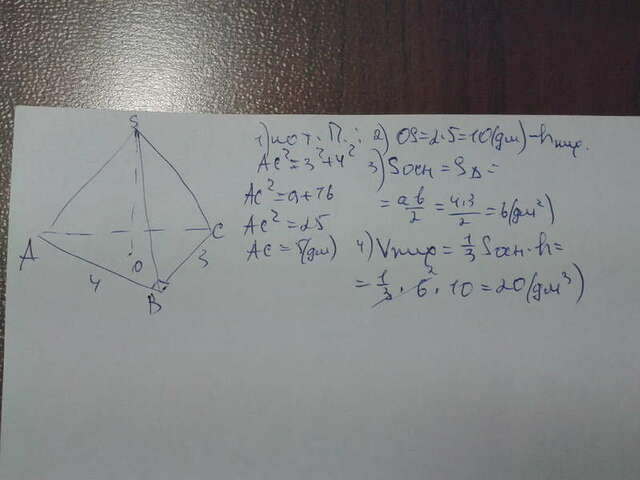 S
A
B
C
O
4
3
1) по т. П.:
AC²=3²+4²
AC²=9+16
AC²=25
AC=5(дм)
2) OS=2·5=10(дм)-hпир.
3) Sосн=S∆=
=ab/2=4·3/2=6(дм²)
4) Vпир=1/3Sосн·h=
=1/3·6²·10=20(дм³)